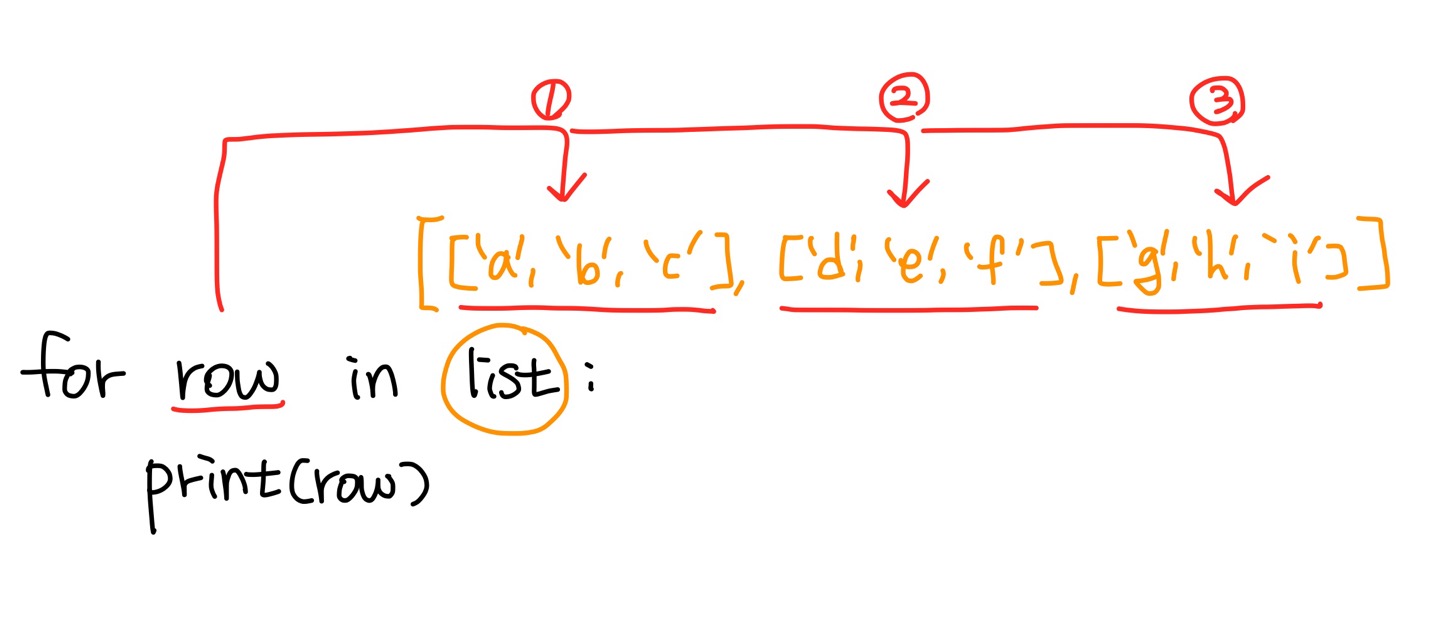 ① ② ③
[['a', 'b', 'c'], ['d', 'e', 'f'], ['g', 'h', 'i']]
for row in list:
print(row)